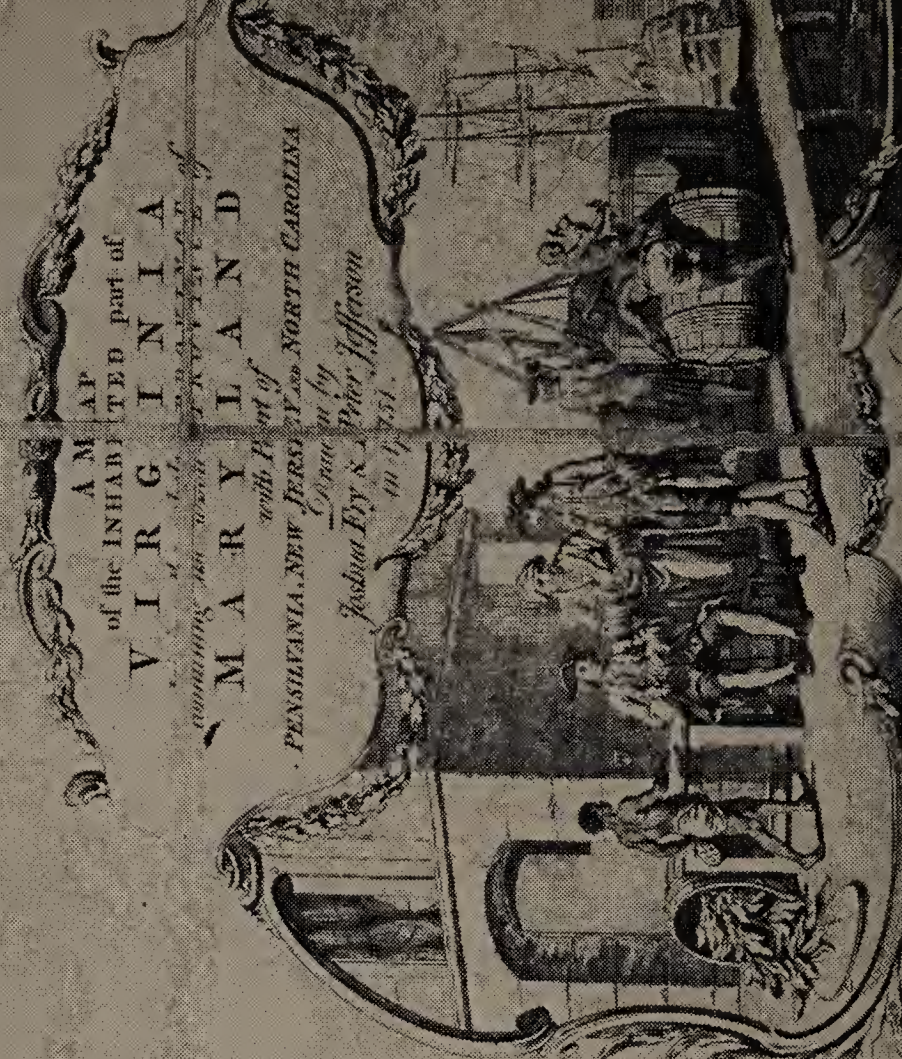 A MAP
of the INHABITED part of
VIRGINIA
MARYLAND
with Part of
PENSILVANIA, NEW JERSEY AND NORTH CAROLINA
Drawn by
Joshua Fry & Peter Jefferson
in 1751.